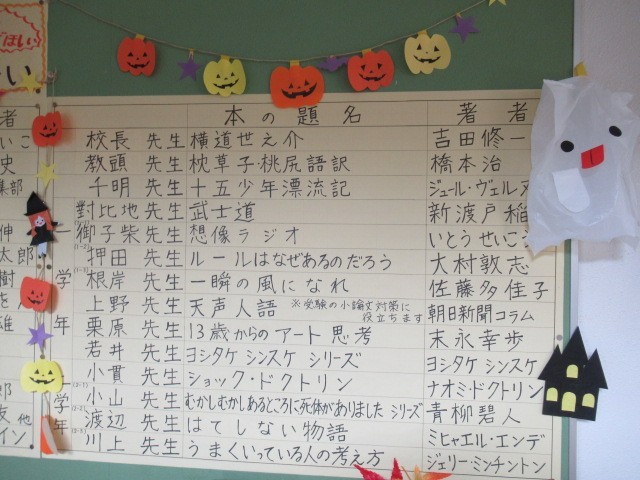 本の題名 著者
校長 先生 横道世之介 吉田修一
教頭 先生 枕草子・桃尻語訳 橋本治
千明 先生 十五少年漂流記 ジュール・ヴェルヌ
對比地 先生 武士道 新渡戸稲
御子柴 先生 想像ラジオ いとうせいこう
押田 先生 ルールはなぜあるのだろう 大村敦志
根岸 先生 一瞬の風になれ 佐藤多佳子
上野 先生 天声人語 ※受験の小論文対策に役立ちます 朝日新聞コラム
栗原 先生 13歳からのアート思考 末永幸歩
若井 先生 ヨシタケシンスケ シリーズ ヨシタケ シンスケ
小貫 先生 ショック・ドクトリン ナオミ・ドクトリン
小山 先生 むかしむかしあるところに死体がありました シリーズ 青柳碧人
渡辺 先生 はてしない物語 ミヒャエル・エンデ
川上 先生 うまくいっている人の考え方 ジェリー・ミンチントン
一学年
学年
者
いこ
史
集部
伸
太郎
樹
雄
郎
友 他
イン